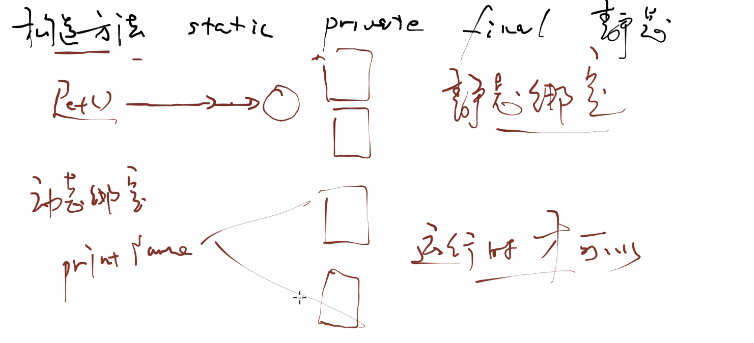 构造方法 static private final 静态
Pet()
静态绑定
动态绑定
printName
运行时才可以